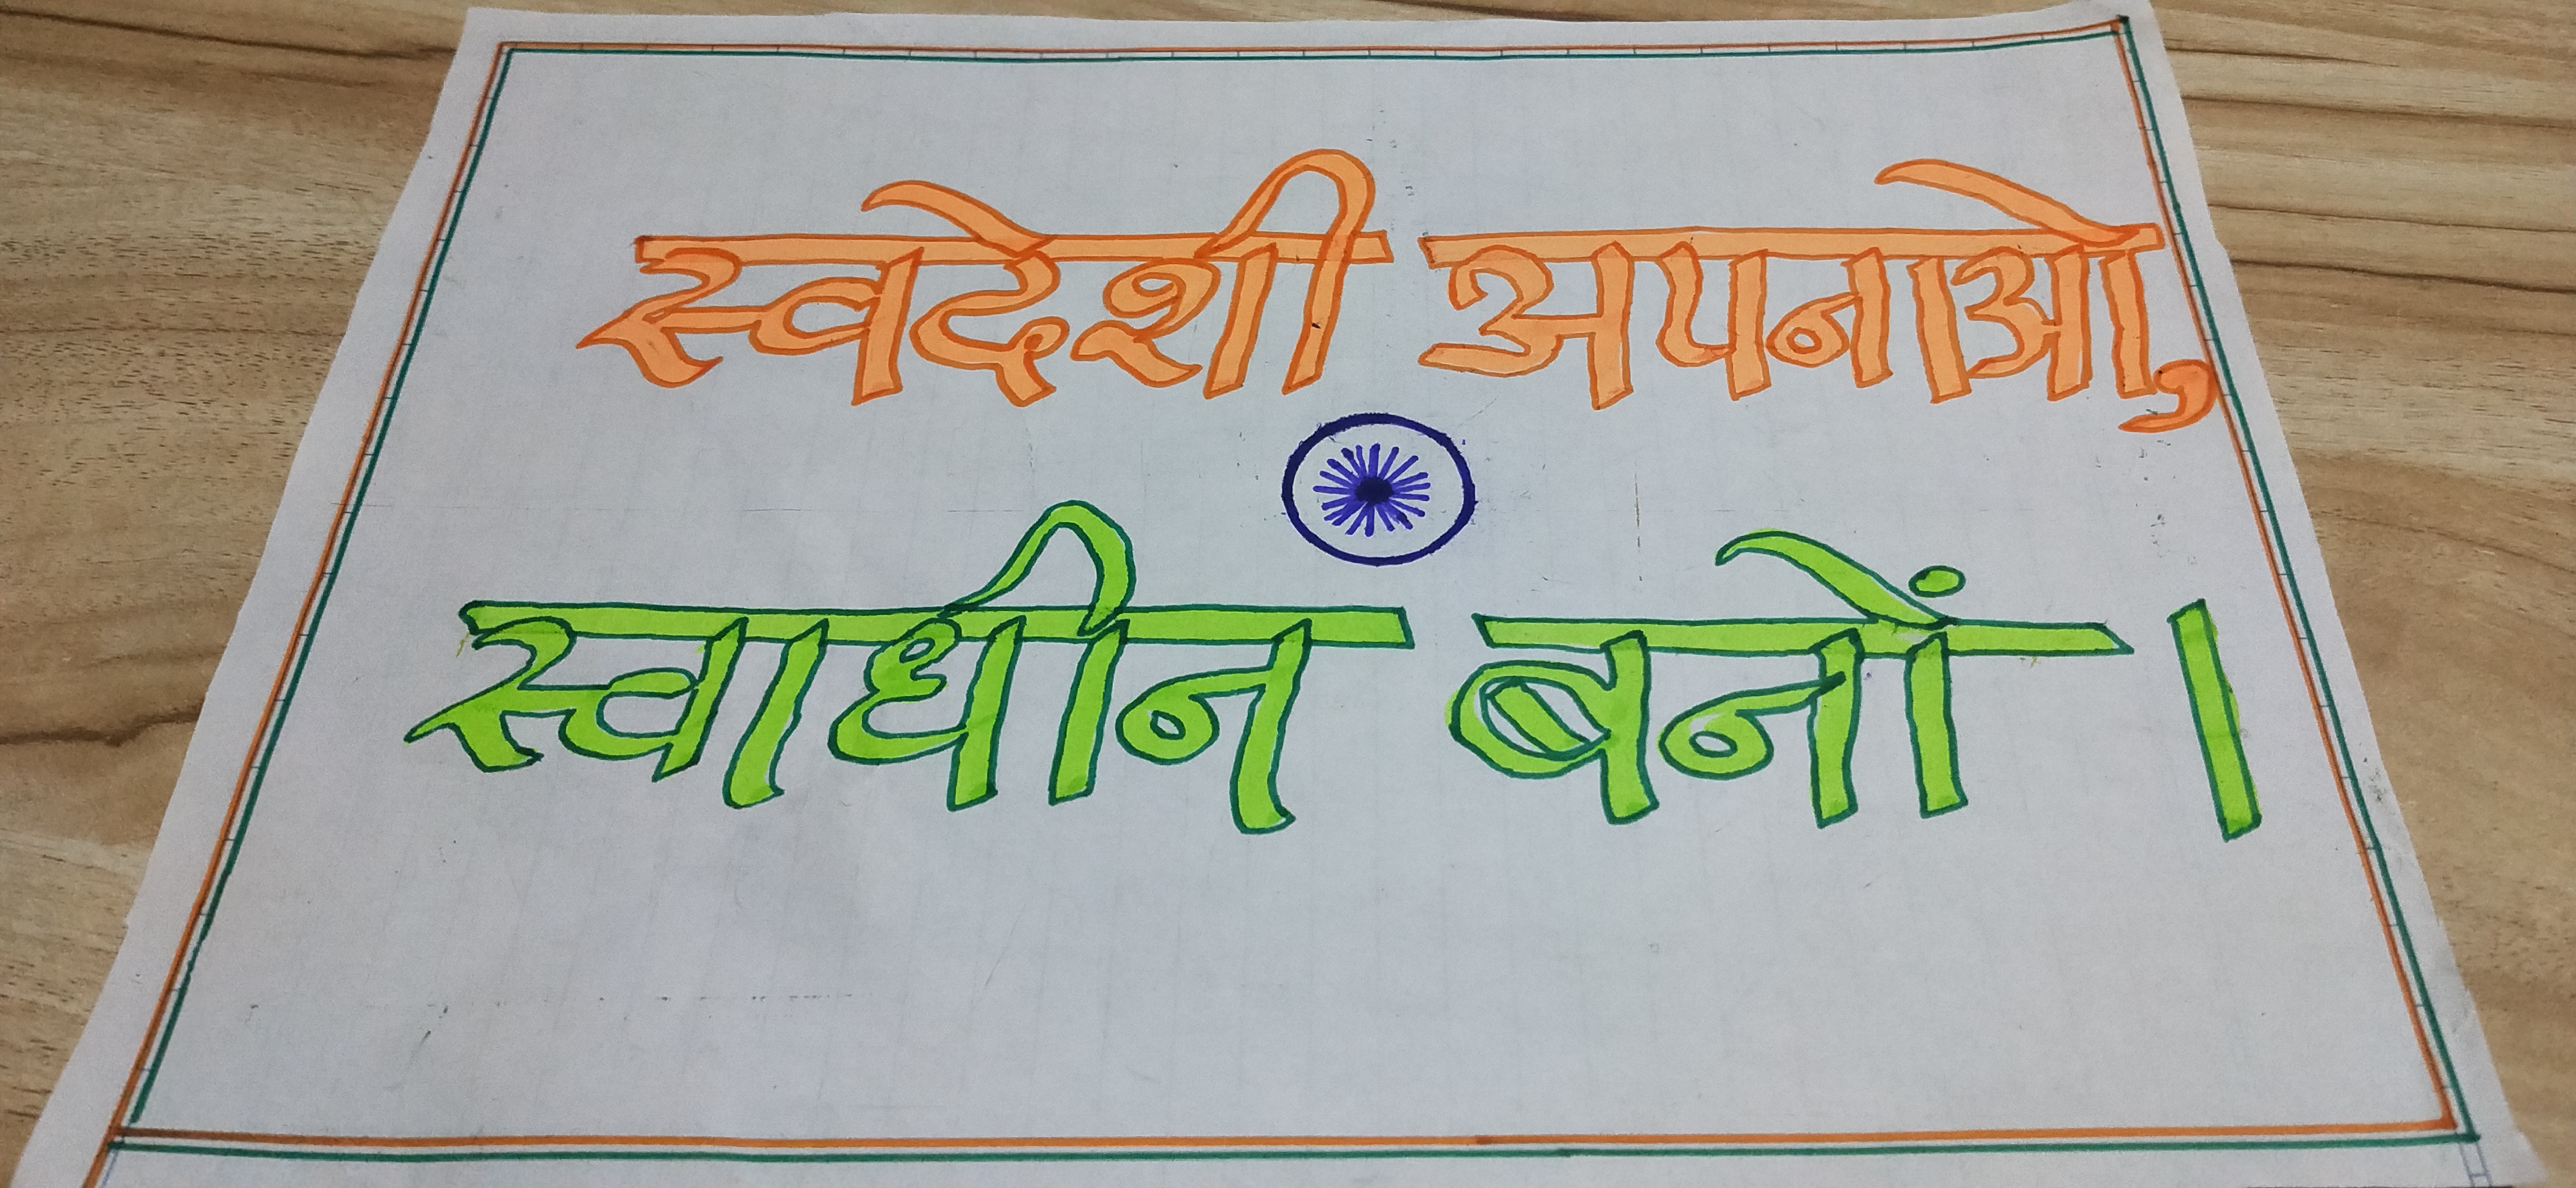 स्वदेशी अपनाओ,
स्वाधीन बनों ।